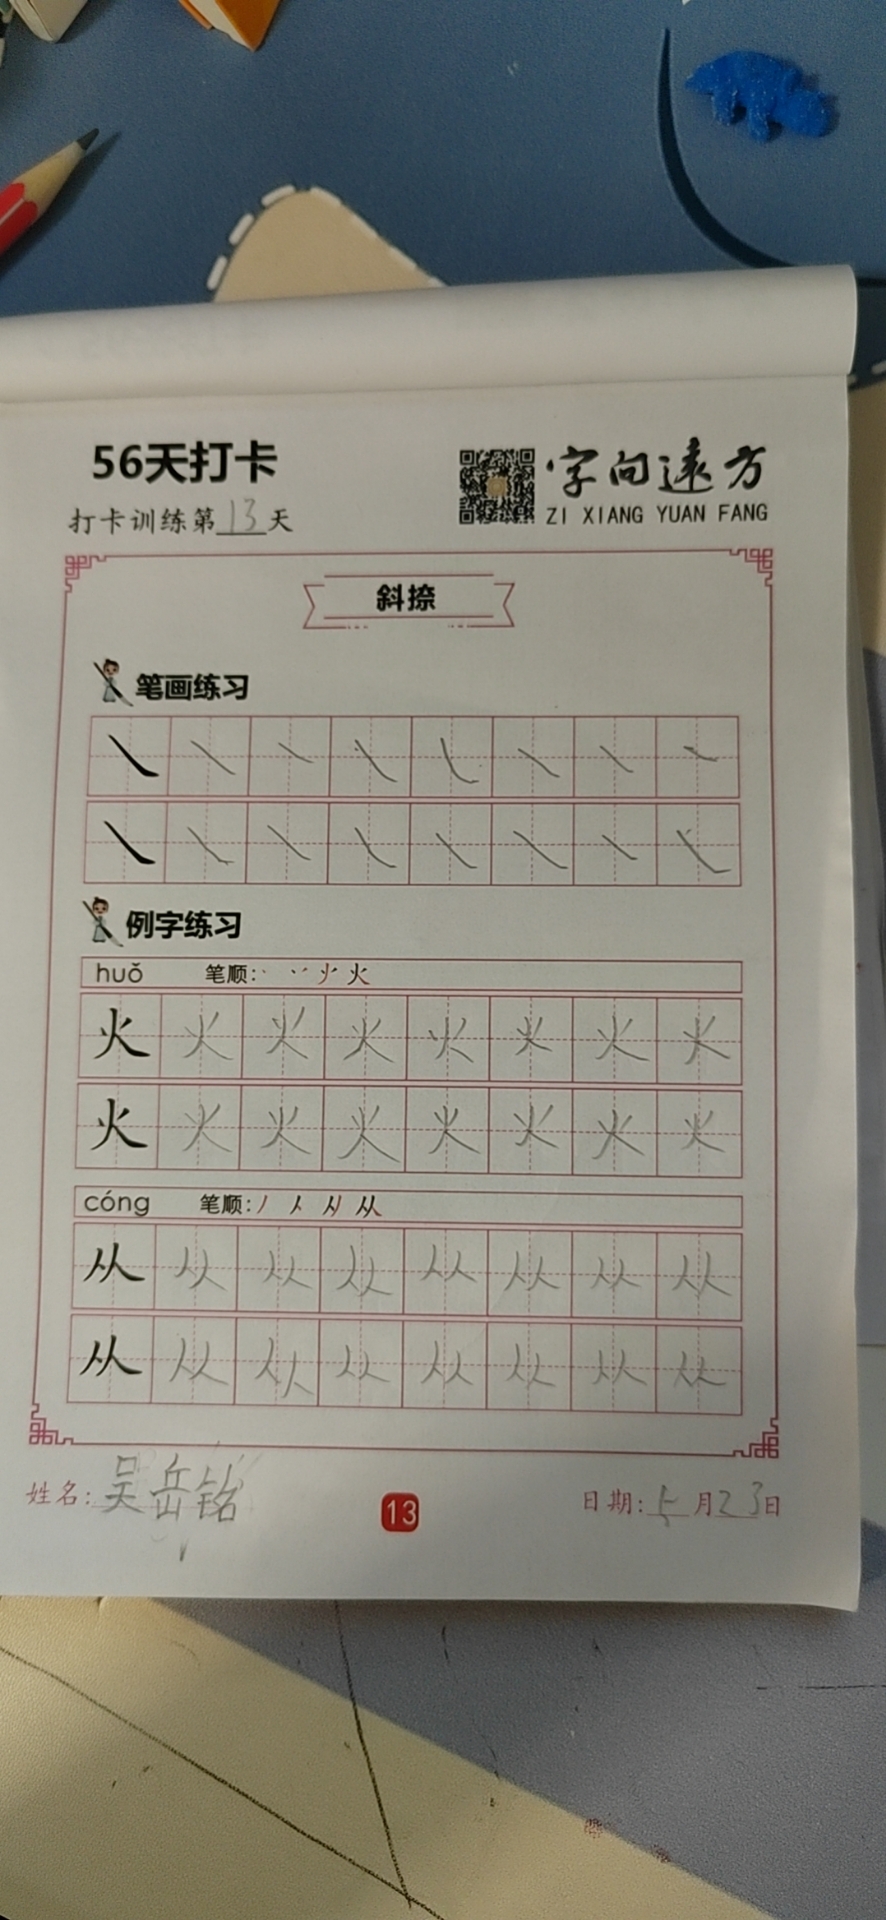 56天打卡
字向远方
打卡训练第13天
ZI XIANG YUAN FANG
斜捺
笔画练习
例字练习
huǒ 笔顺: 火
火 火 火 火 火 火 火 火
火 火 火 火 火 火 火 火
cóng 笔顺: 丿 从
从 从 从 从 从 从 从 从
从 从 从 从 从 从 从 从
姓名: 吴岳铭
13
日期: 5月23日